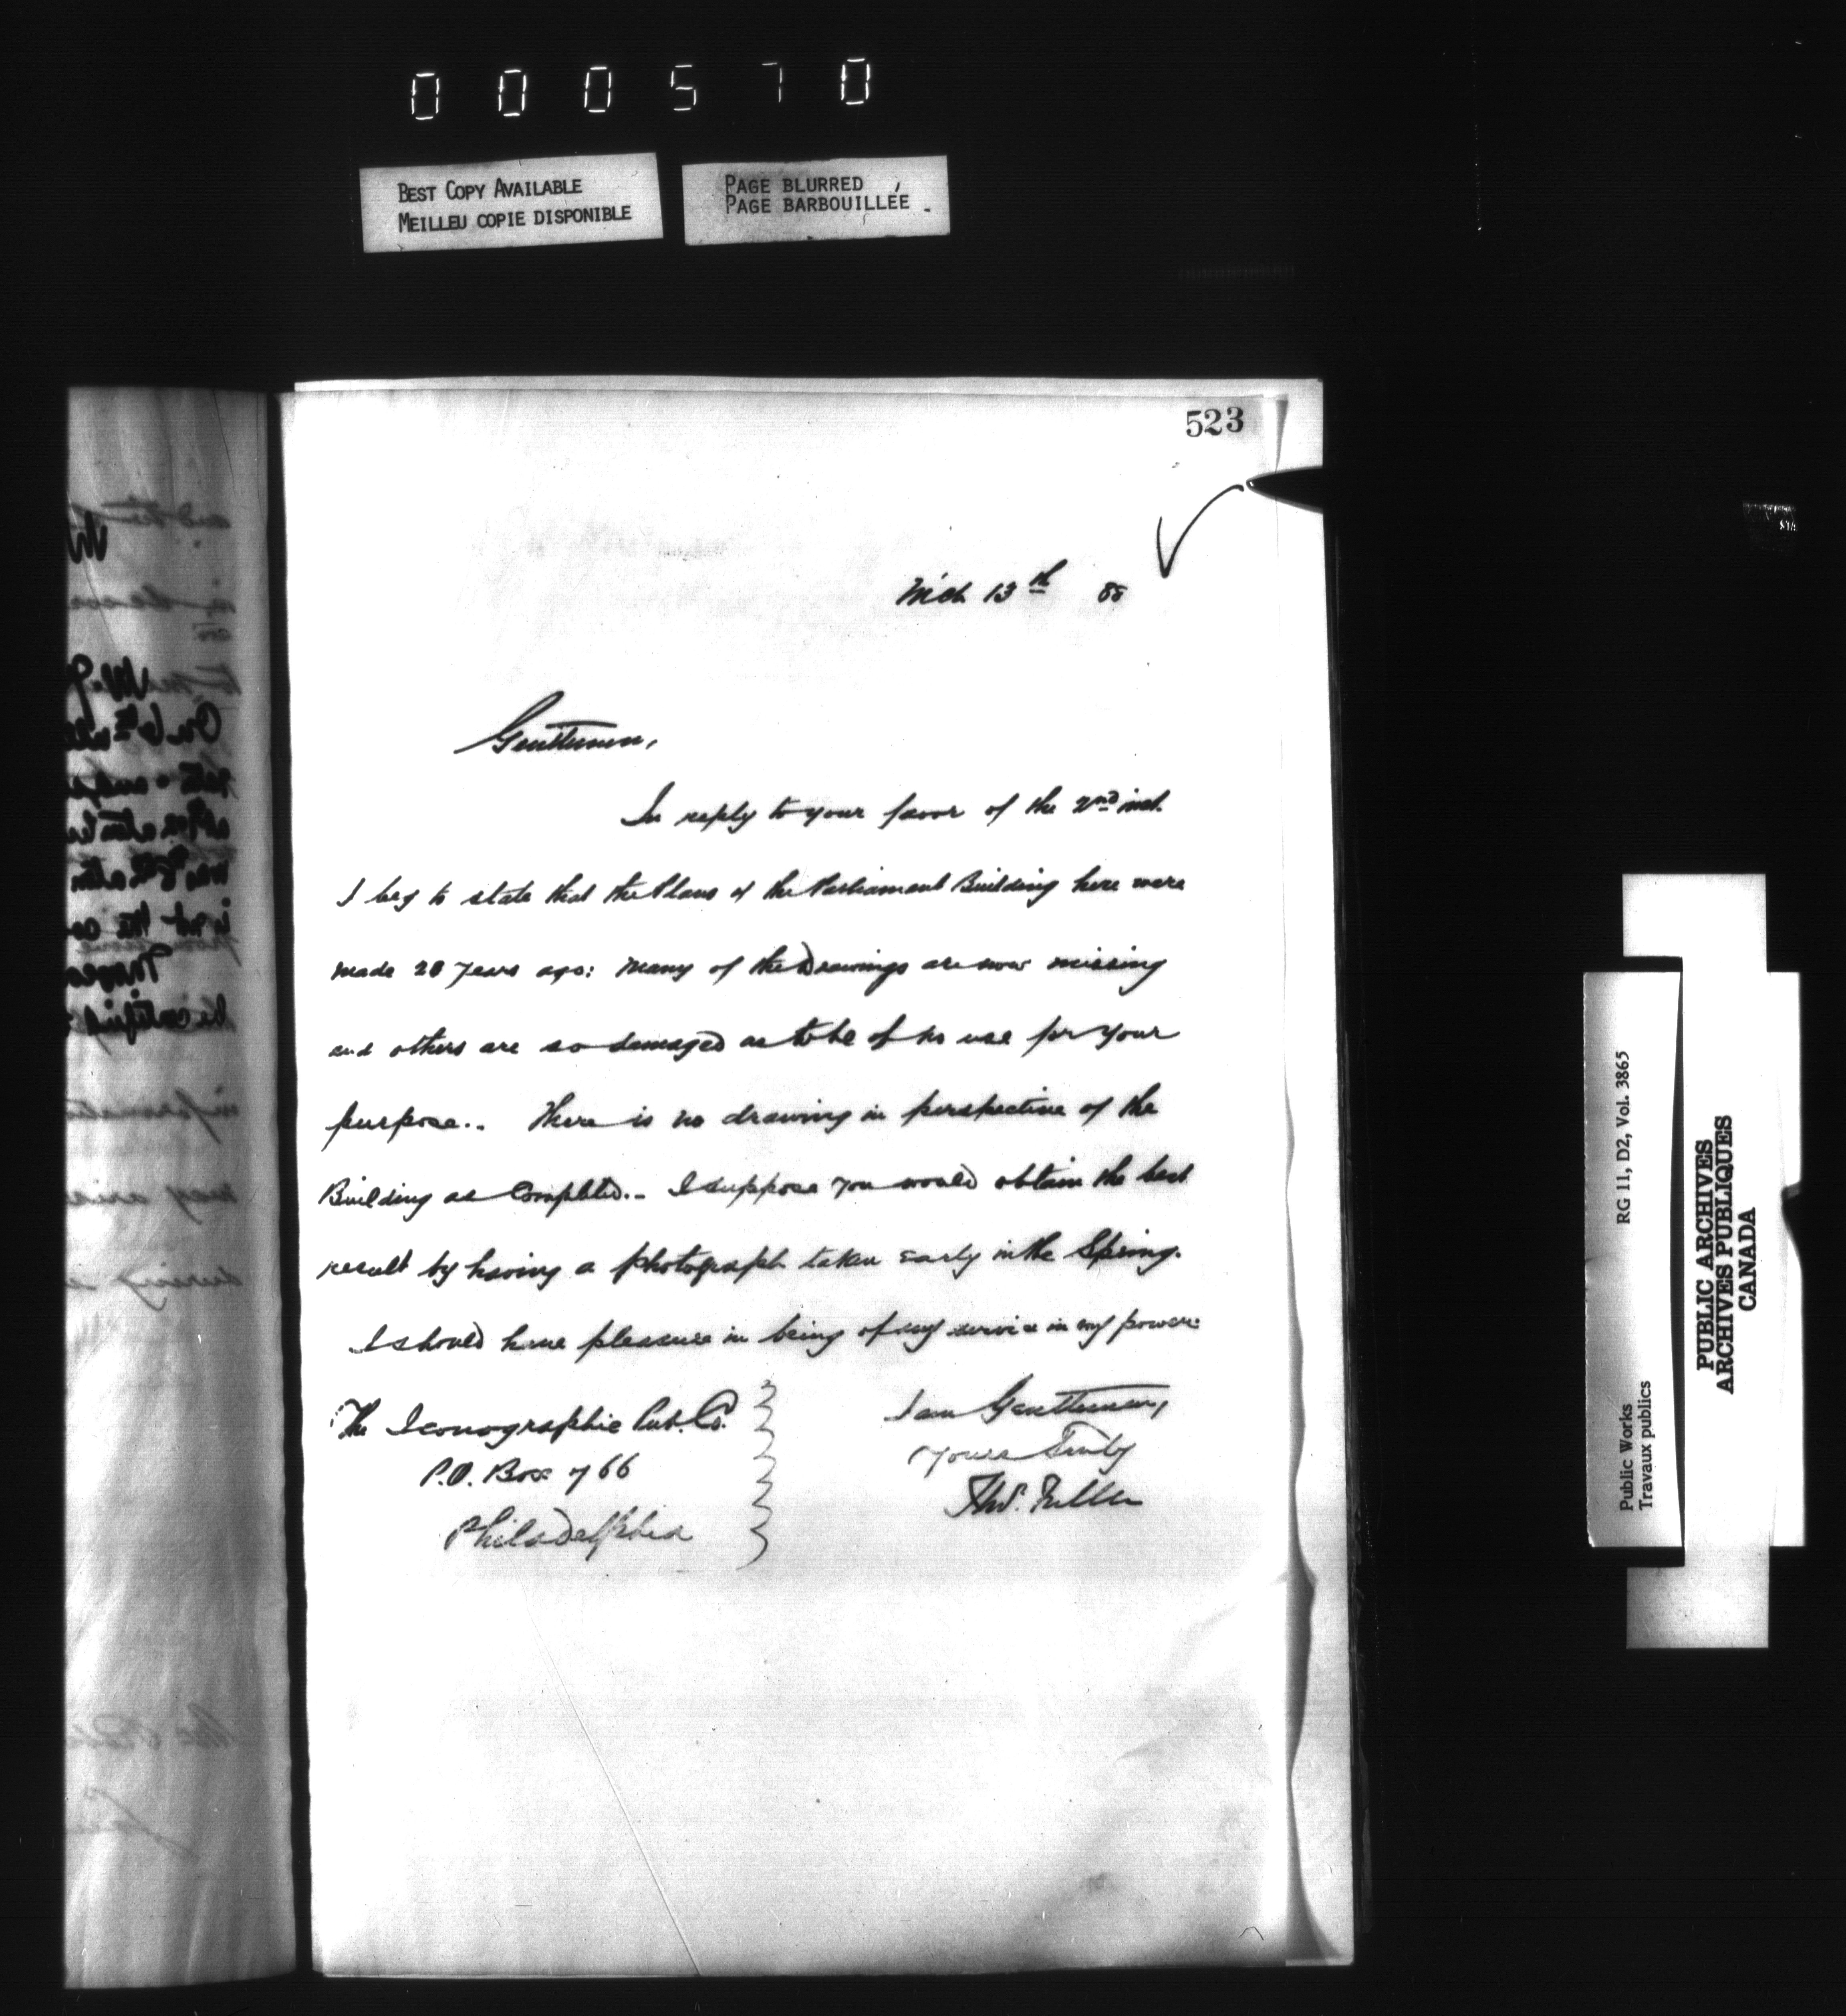 000570
BEST COPY AVAILABLE
MEILLEU COPIE DISPONIBLE
PAGE BLURRED
PAGE BARBOUILLÉE
523
Mch 13th 88
Gentlemen,
In reply to your favor of the 2nd inst.
I beg to state that the Plans of the Parliament Building here were
made 28 years ago: many of the Drawings are now missing
and others are so damaged as to be of no use for your
purpose.. There is no drawing in perspective of the
Building as Completed.. I suppose you would obtain the best
result by having a photograph taken early in the Spring.
I should have pleasure in being of any service in my power.
The Iconographic Pub. Co.
P.O. Box 766
Philadelphia
I am Gentlemen,
Yours Truly
Thos. Fuller
Public Works
Travaux publics
RG 11, D2, Vol. 3865
PUBLIC ARCHIVES
ARCHIVES PUBLIQUES
CANADA